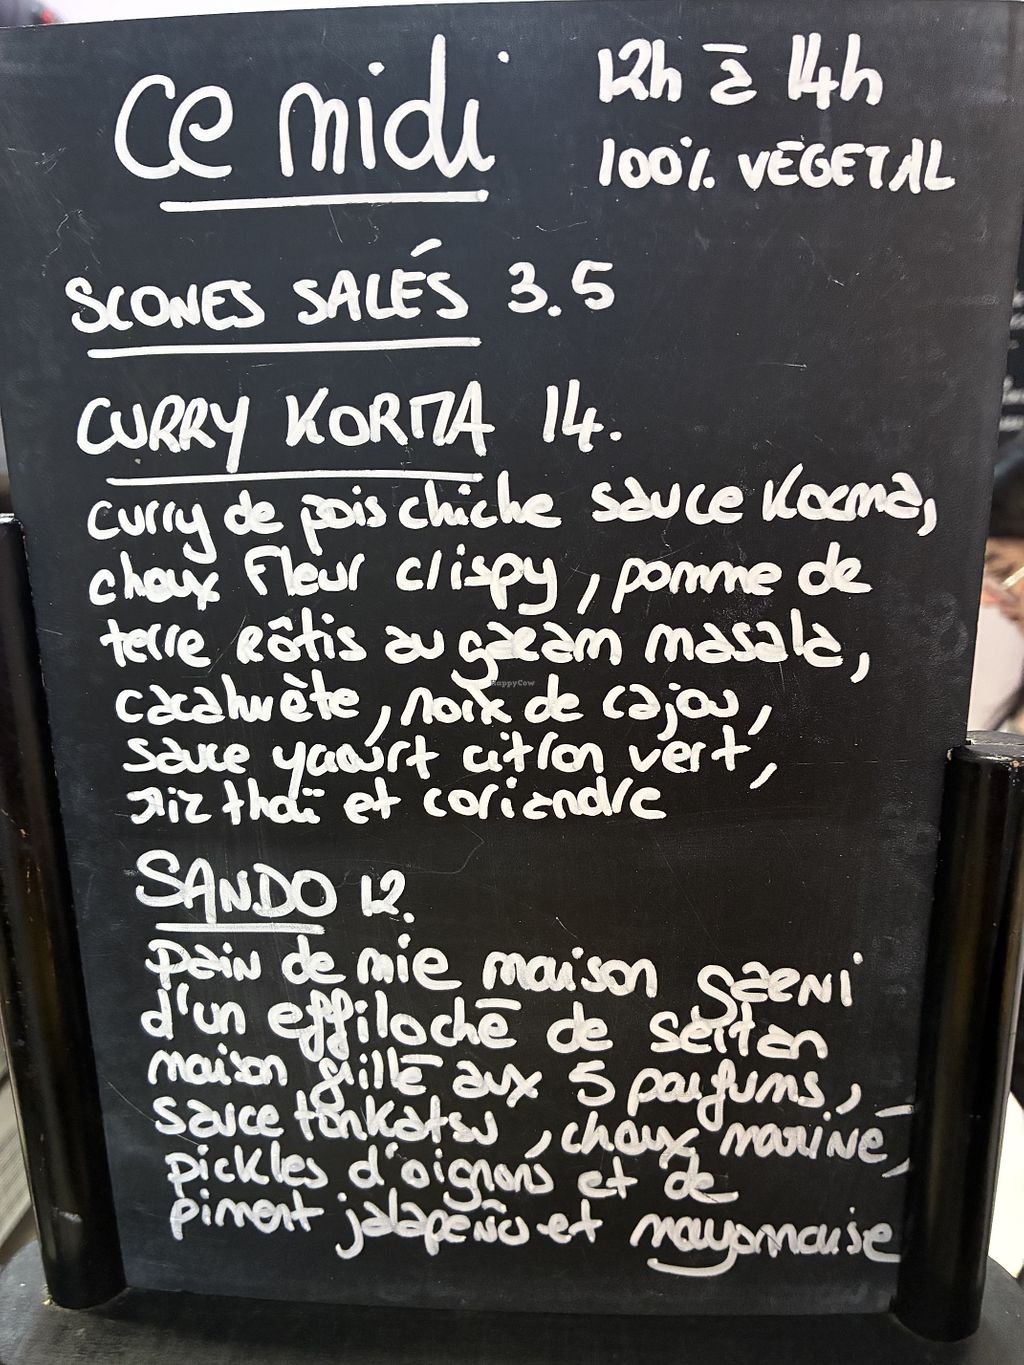 Ce midi
12h à 14h
100% VÉGÉTAL
SCONES SALÉS 3.5
CURRY KORMA 14.
curry de pois chiche sauce Korma,
choux Fleur crispy, pomme de
terre Rôtis au garam masala,
cacahuète, noix de cajou,
sauce yaourt citron vert,
riz thaï et coriandre
HappyCow
SANDO 12.
Pain de mie maison garni
d'un effiloché de seitan
maison grillé aux 5 parfums,
sauce tonkatsu, choux mariné,
pickles d'oignons et de
piment jalapeño et mayonnaise